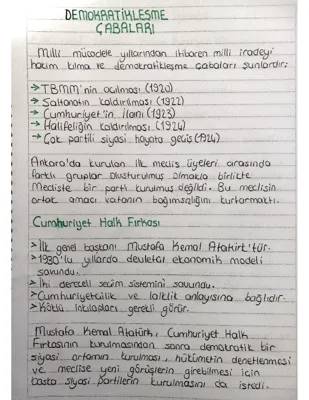 DEMOKRATİKLEŞME
ÇABALARI
Milli mücadele yıllarından itibaren milli iradeyi
hakim kılma ve demokratikleşme çabaları şunlardır:
→TBMM'nin açılması (1920)
→Saltanatın kaldırılması (1922)
→Cumhuriyet'in ilanı (1923)
→Halifeliğin kaldırılması (1924)
→Çok partili siyasi hayata geçiş (1924)
Ankara'da kurulan ilk meclis üyeleri arasında
farklı gruplar oluşturulmuş olmakla birlikte
Mecliste bir parti kurulmuş değildi. Bu meclisin
ortak amacı vatanın bağımsızlığını kurtarmaktı.
Cumhuriyet Halk Fırkası
➤İlk genel başkanı Mustafa Kemal Atatürk'tür.
➤1930'lu yıllarda devletçi ekonomik modeli
savundu.
➤İki dereceli seçim sistemini savundu.
➤Cumhuriyetçilik ve laiklik anlayışına bağlıdır.
➤Köklü inkılapları gerekli görür.
Mustafa Kemal Atatürk, Cumhuriyet Halk
Fırkasının kurulmasından sonra demokratik bir
siyasi ortamın kurulması, hükümetin denetlenmesi
ve meclise yeni görüşlerin girebilmesi için
başta siyasi partilerin kurulmasını da istedi.